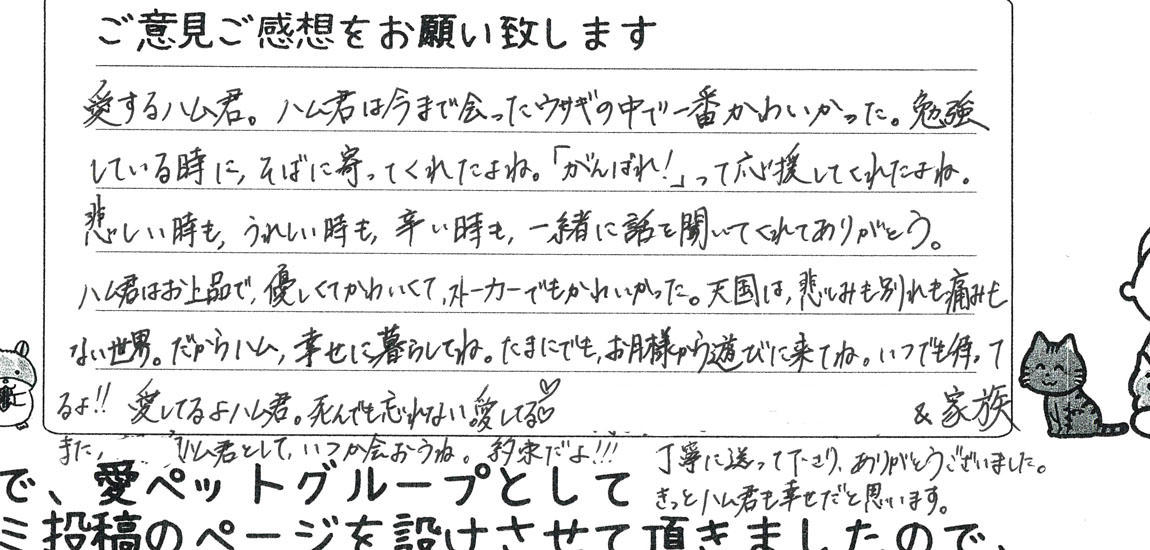 ご意見ご感想をお願い致します
愛するハム君。ハム君は今まで会ったウサギの中で一番かわいかった。勉強
している時に、そばに寄ってくれたよね。「がんばれ!」って応援してくれたよね。
悲しい時も、うれしい時も、辛い時も、一緒に話を聞いてくれてありがとう。
ハム君はお上品で、優しくてかわいくて、ストーカーでもかわいかった。天国は、悲しみも別れも痛みも
ない世界。だからハム、幸せに暮らしてね。たまにでも、お月様から遊びに来てね。いつでも待って
るよ!! 愛してるよハム君。死んでも忘れない愛してる♡ & 家族
また、 ハム君として、いつか会おうね。約束だよ!!!
丁寧に送って下さり、ありがとうございました。
きっとハム君も幸せだと思います。
で、愛ペットグループとして
ミ投稿のページを設けさせて頂きましたので、